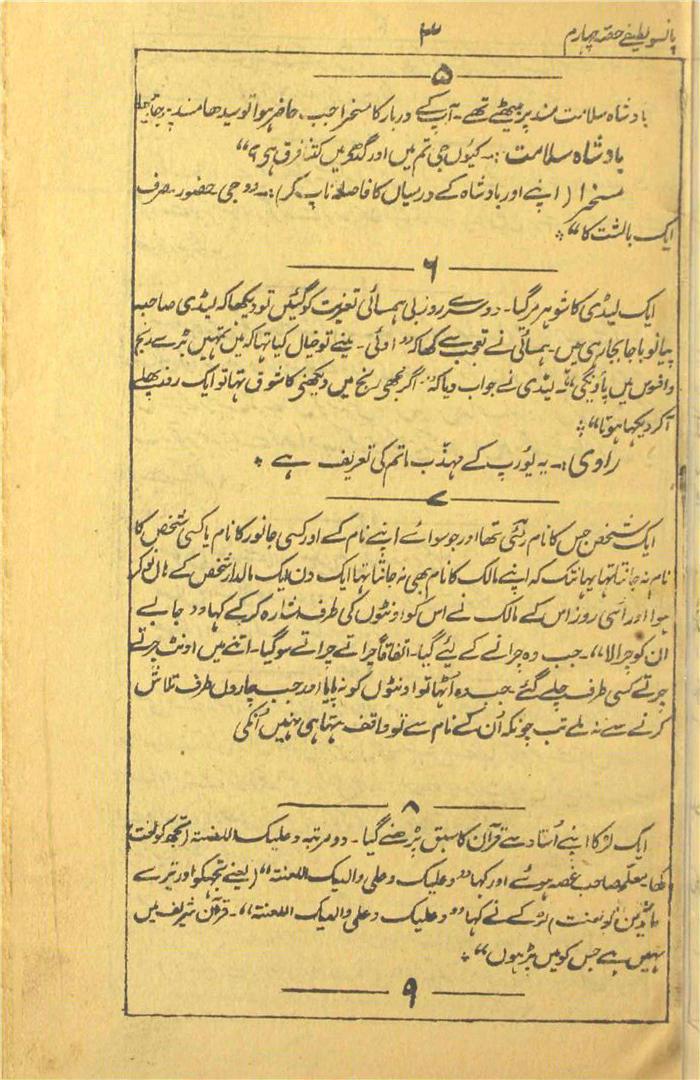 پانسو لطیفے حصہ چہارم
۳
۵
بادشاہ سلامت مسند پر بیٹھے تھے۔ آپ کے دربار کا مسخرا جب حاضر ہوا تو سیدھا مسند پر جا بیٹھا
بادشاہ سلامت :۔ کیوں جی تم میں اور گدھے میں کتنا فرق ہی؟“
مسخرا (اپنے اور بادشاہ کے درمیاں کا فاصلہ ناپ کر):۔ ”جی حضور۔ صرف
ایک بالشت کا“ ؞
۶
ایک لیڈی کا شوہر مر گیا۔ دوسرے روز بی ہمسائی تعزیت کو گئیں تو دیکھا کہ لیڈی صاحبہ
پیانو باجا بجا رہی ہیں۔ ہمسائی نے تعجب سے کہا کہ ”اوئی۔ مینے تو خیال کیا تہا کہ میں تمہیں بڑے رنج
وافسوس میں پاؤنگی“۔ لیڈی نے جواب دیا کہ ”اگر مجھی رنج میں دیکھنی کا شوق تہا تو ایک روز پہلے
آکر دیکہا ہوتا“ ؞
راوی :۔ یہ یورپ کے مہذب ماتم کی تعریف ہے ؞
۷
ایک شخص جس کا نام رتنی تھا اور جو سوائے اپنے نام کے اور کسی جانور کا نام یا کسی شخص کا
نام نہ جانتا تہا یہانتک کہ اپنے مالک کا نام بھی نہ جانتا تہا ایک دن ایک مالدار شخص کے ہاں نوکر
ہوا اور اُسی روز اس کے مالک نے اس کو اونٹوں کی طرف اشارہ کر کے کہا ”جا بے
ان کو چرا لا“۔ جب وہ چرانے کے لیئے گیا۔ اتفاقاً چراتے چراتے سو گیا۔ اتنے میں اونٹ چرتے
چرتے کسی طرف چلے گئے۔ جب وہ اٹہا تو اونٹوں کو نہ پایا اور جب چاروں طرف تلاش
کرنے سے نہ ملے تب چونکہ اُن کے نام سے تو واقف تہا ہی نہیں اُنکی
۸
ایک لڑکا اپنے اُستاد سے قرآن کا سبق پڑھنے گیا۔ دو مرتبہ وعلیک اللعنتہ (تجھ کو لعنت)
کہا معلم صاحب غصہ ہوئے اور کہا ”وعلیک وعلی والدیک اللعنتہ“ (یعنے تجہکو اور تیرے
والدین کو لعنت) لڑکے نے کہا ”وعلیک وعلی والدیک اللعنتہ“۔ قرآن شریف میں
نہیں ہے جس کو میں پڑہوں“ ؞
۹